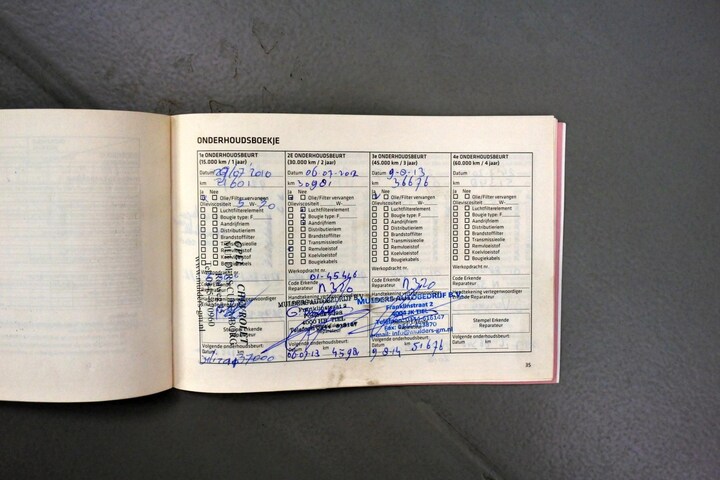 ONDERHOUDSBOEKJE
1e ONDERHOUDSBEURT
(15.000 km / 1 jaar)
Datum 29/07 2010
km 21601
Ja Nee
Olie/Filter vervangen
Olieviscositeit 5 W- 30
Luchtfilterelement
Bougie type: F
Aandrijfriem
Distributieriem
Brandstoffilter
Transmissieolie
Remvloeistof
Koelvloeistof
Bougiekabels
OPEL CHEVROLET
Stempel Erkende
Reparateur
Volgende onderhoudsbeurt:
Datum km
37000
2E ONDERHOUDSBEURT
(30.000 km / 2 jaar)
Datum 06-07-2012
km 30981
Ja Nee
Olie/Filter vervangen
Olieviscositeit W-
Luchtfilterelement
Bougie type: F
Aandrijfriem
Distributieriem
Brandstoffilter
Transmissieolie
Remvloeistof
Koelvloeistof
Bougiekabels
Werkopdracht nr.
01-45446
Code Erkende
Reparateur N320
MULDERS AUTOBEDRIJF B.V.
Franklinstraat 2
Volgende onderhoudsbeurt:
Datum km
06-07-13 45981
3e ONDERHOUDSBEURT
(45.000 km / 3 jaar)
Datum 9-8-13
km 36676
Ja Nee
Olie/Filter vervangen
Olieviscositeit W-
Luchtfilterelement
Bougie type: F
Aandrijfriem
Distributieriem
Brandstoffilter
Transmissieolie
Remvloeistof
Koelvloeistof
Bougiekabels
Werkopdracht nr.
Code Erkende
Reparateur N320
MULDERS AUTOBEDRIJF B.V.
Franklinstraat 2
4004 JK TIEL
email: info@mulders-gm.nl
Volgende onderhoudsbeurt:
Datum km
9-8-14 51676
4e ONDERHOUDSBEURT
(60.000 km / 4 jaar)
Datum
km
Ja Nee
Olie/Filter vervangen
Olieviscositeit W-
Luchtfilterelement
Bougie type: F
Aandrijfriem
Distributieriem
Brandstoffilter
Transmissieolie
Remvloeistof
Koelvloeistof
Bougiekabels
Werkopdracht nr.
Code Erkende
Reparateur
Handtekening vertegenwoordiger
Stempel Erkende
Reparateur
Volgende onderhoudsbeurt:
Datum km
35